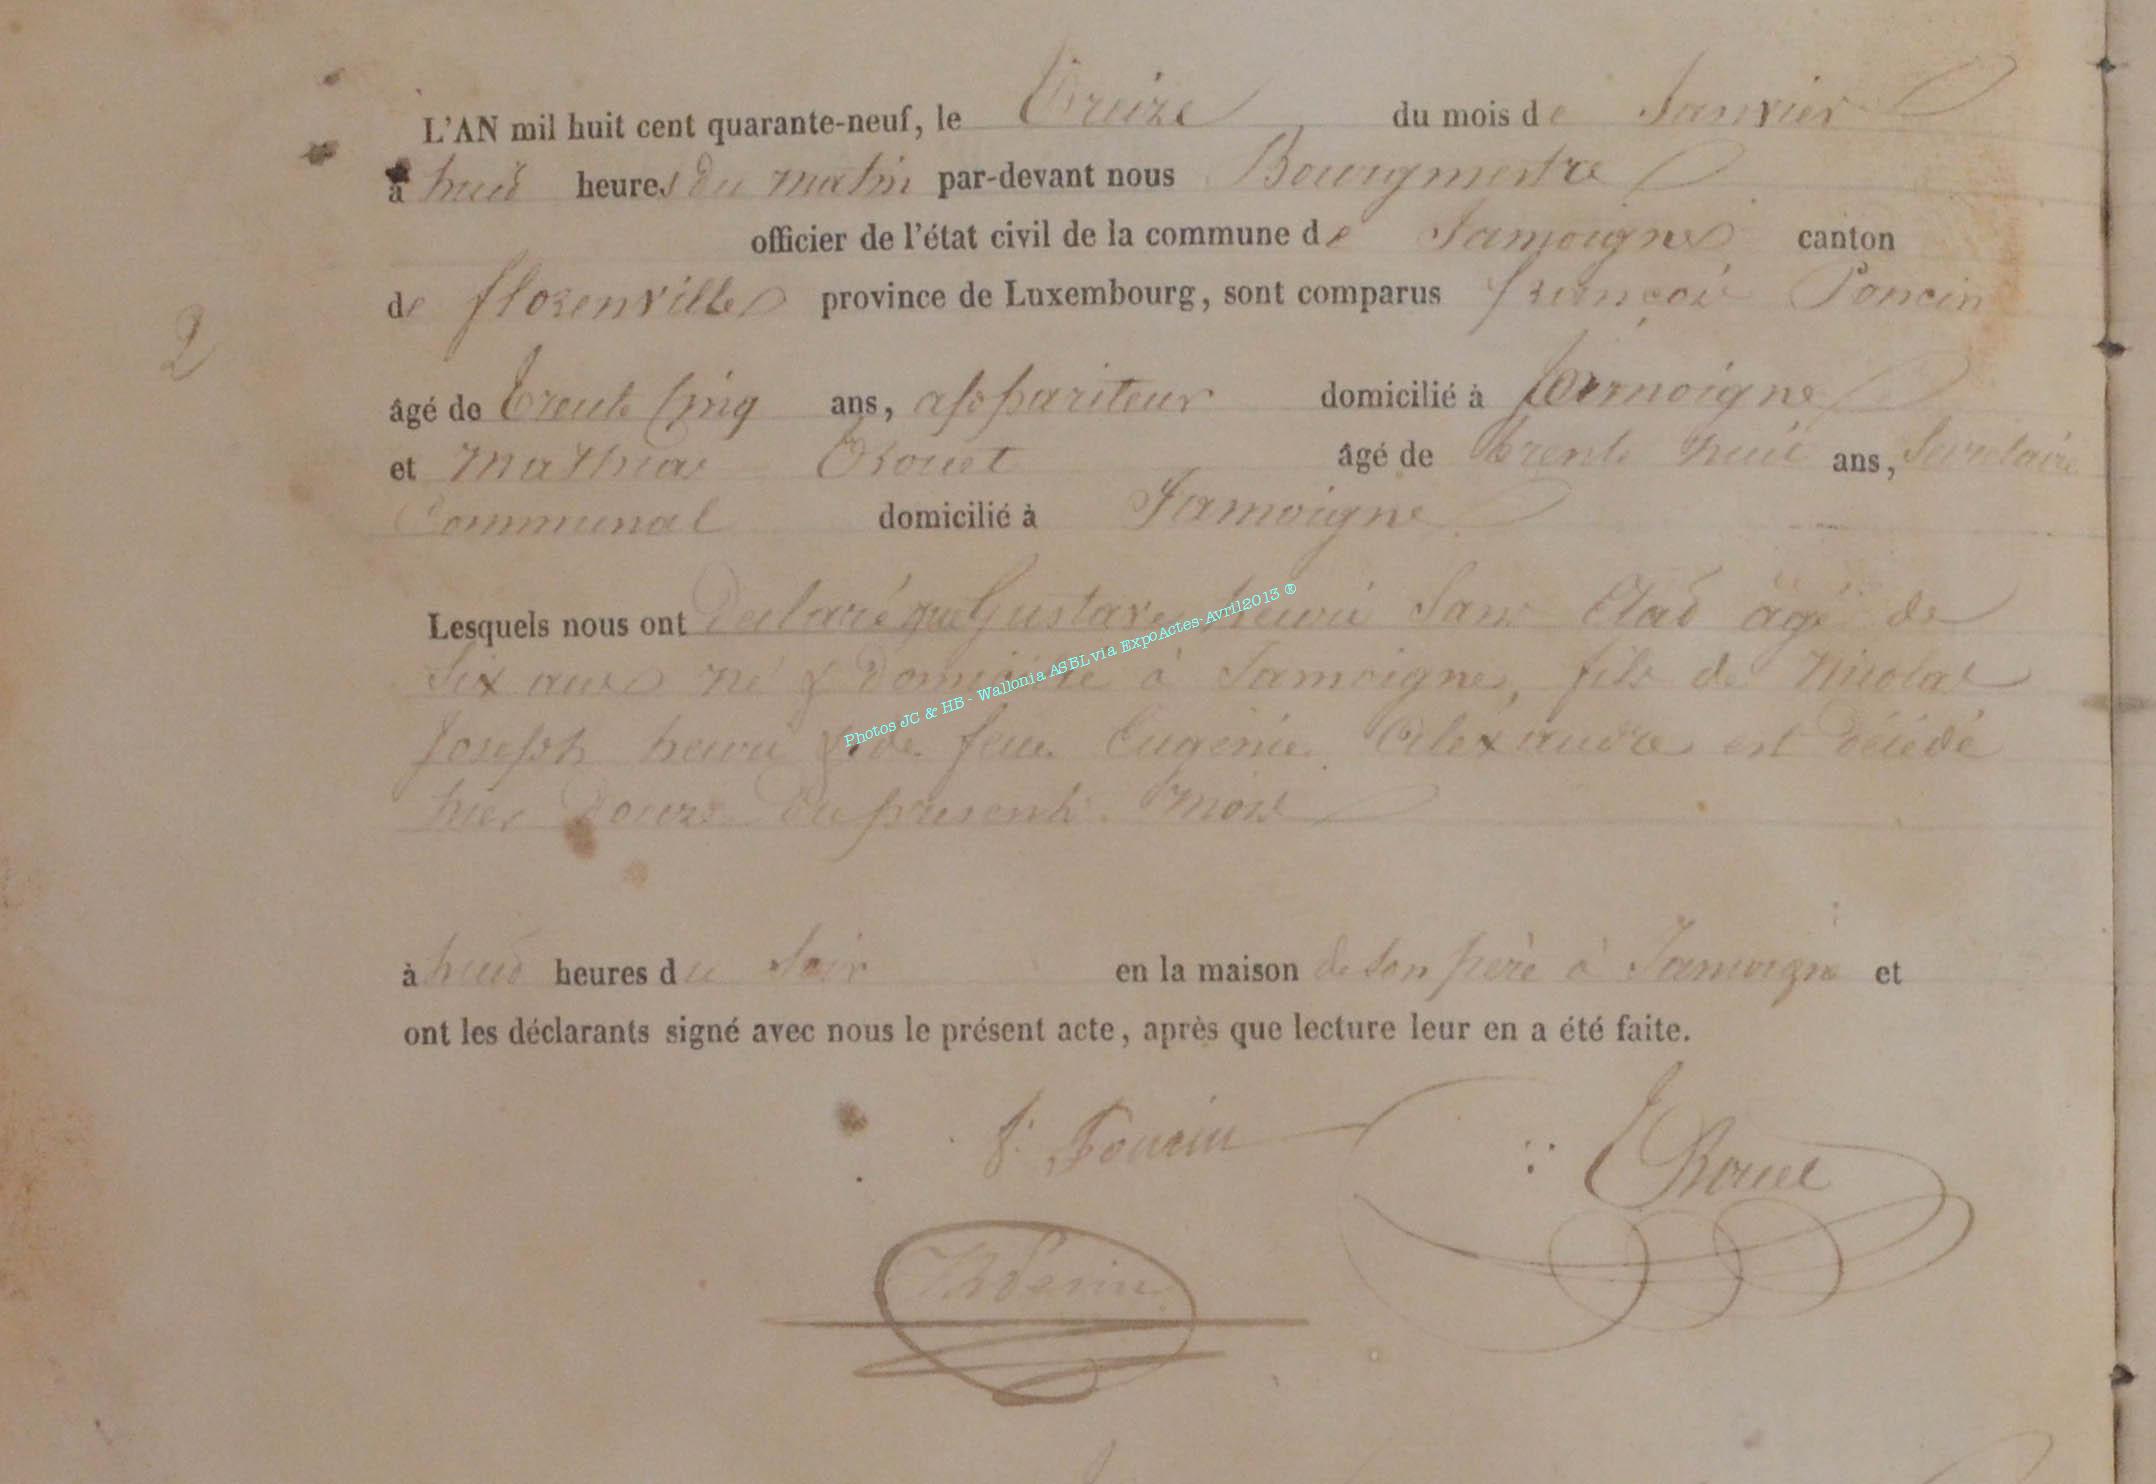 L'AN mil huit cent quarante-neuf, le Treize du mois de Janvier
à huit heures du matin par-devant nous Bourgmestre
officier de l'état civil de la commune de Jamoigne canton
de florenville province de Luxembourg, sont comparus françois Poncin
2
âgé de trente cinq ans, appariteur domicilié à Jamoigne
et Mathias Rouet âgé de trente huit ans, Secretaire
Communal domicilié à Jamoigne
Lesquels nous ont Declaré que Gustave henri Sans Etat âgé de
Six ans né & domicilié à Jamoigne, fils de Nicolas
Joseph henri & de feue Eugénie Alexandre est décédé
hier douze du present mois
Photos JC & HB - Wallonia ASBL via ExpoActes-Avril2013 ®
à huit heures du Soir en la maison de son père à Jamoigne et
ont les déclarants signé avec nous le présent acte, après que lecture leur en a été faite.
f. Poncin Rouet